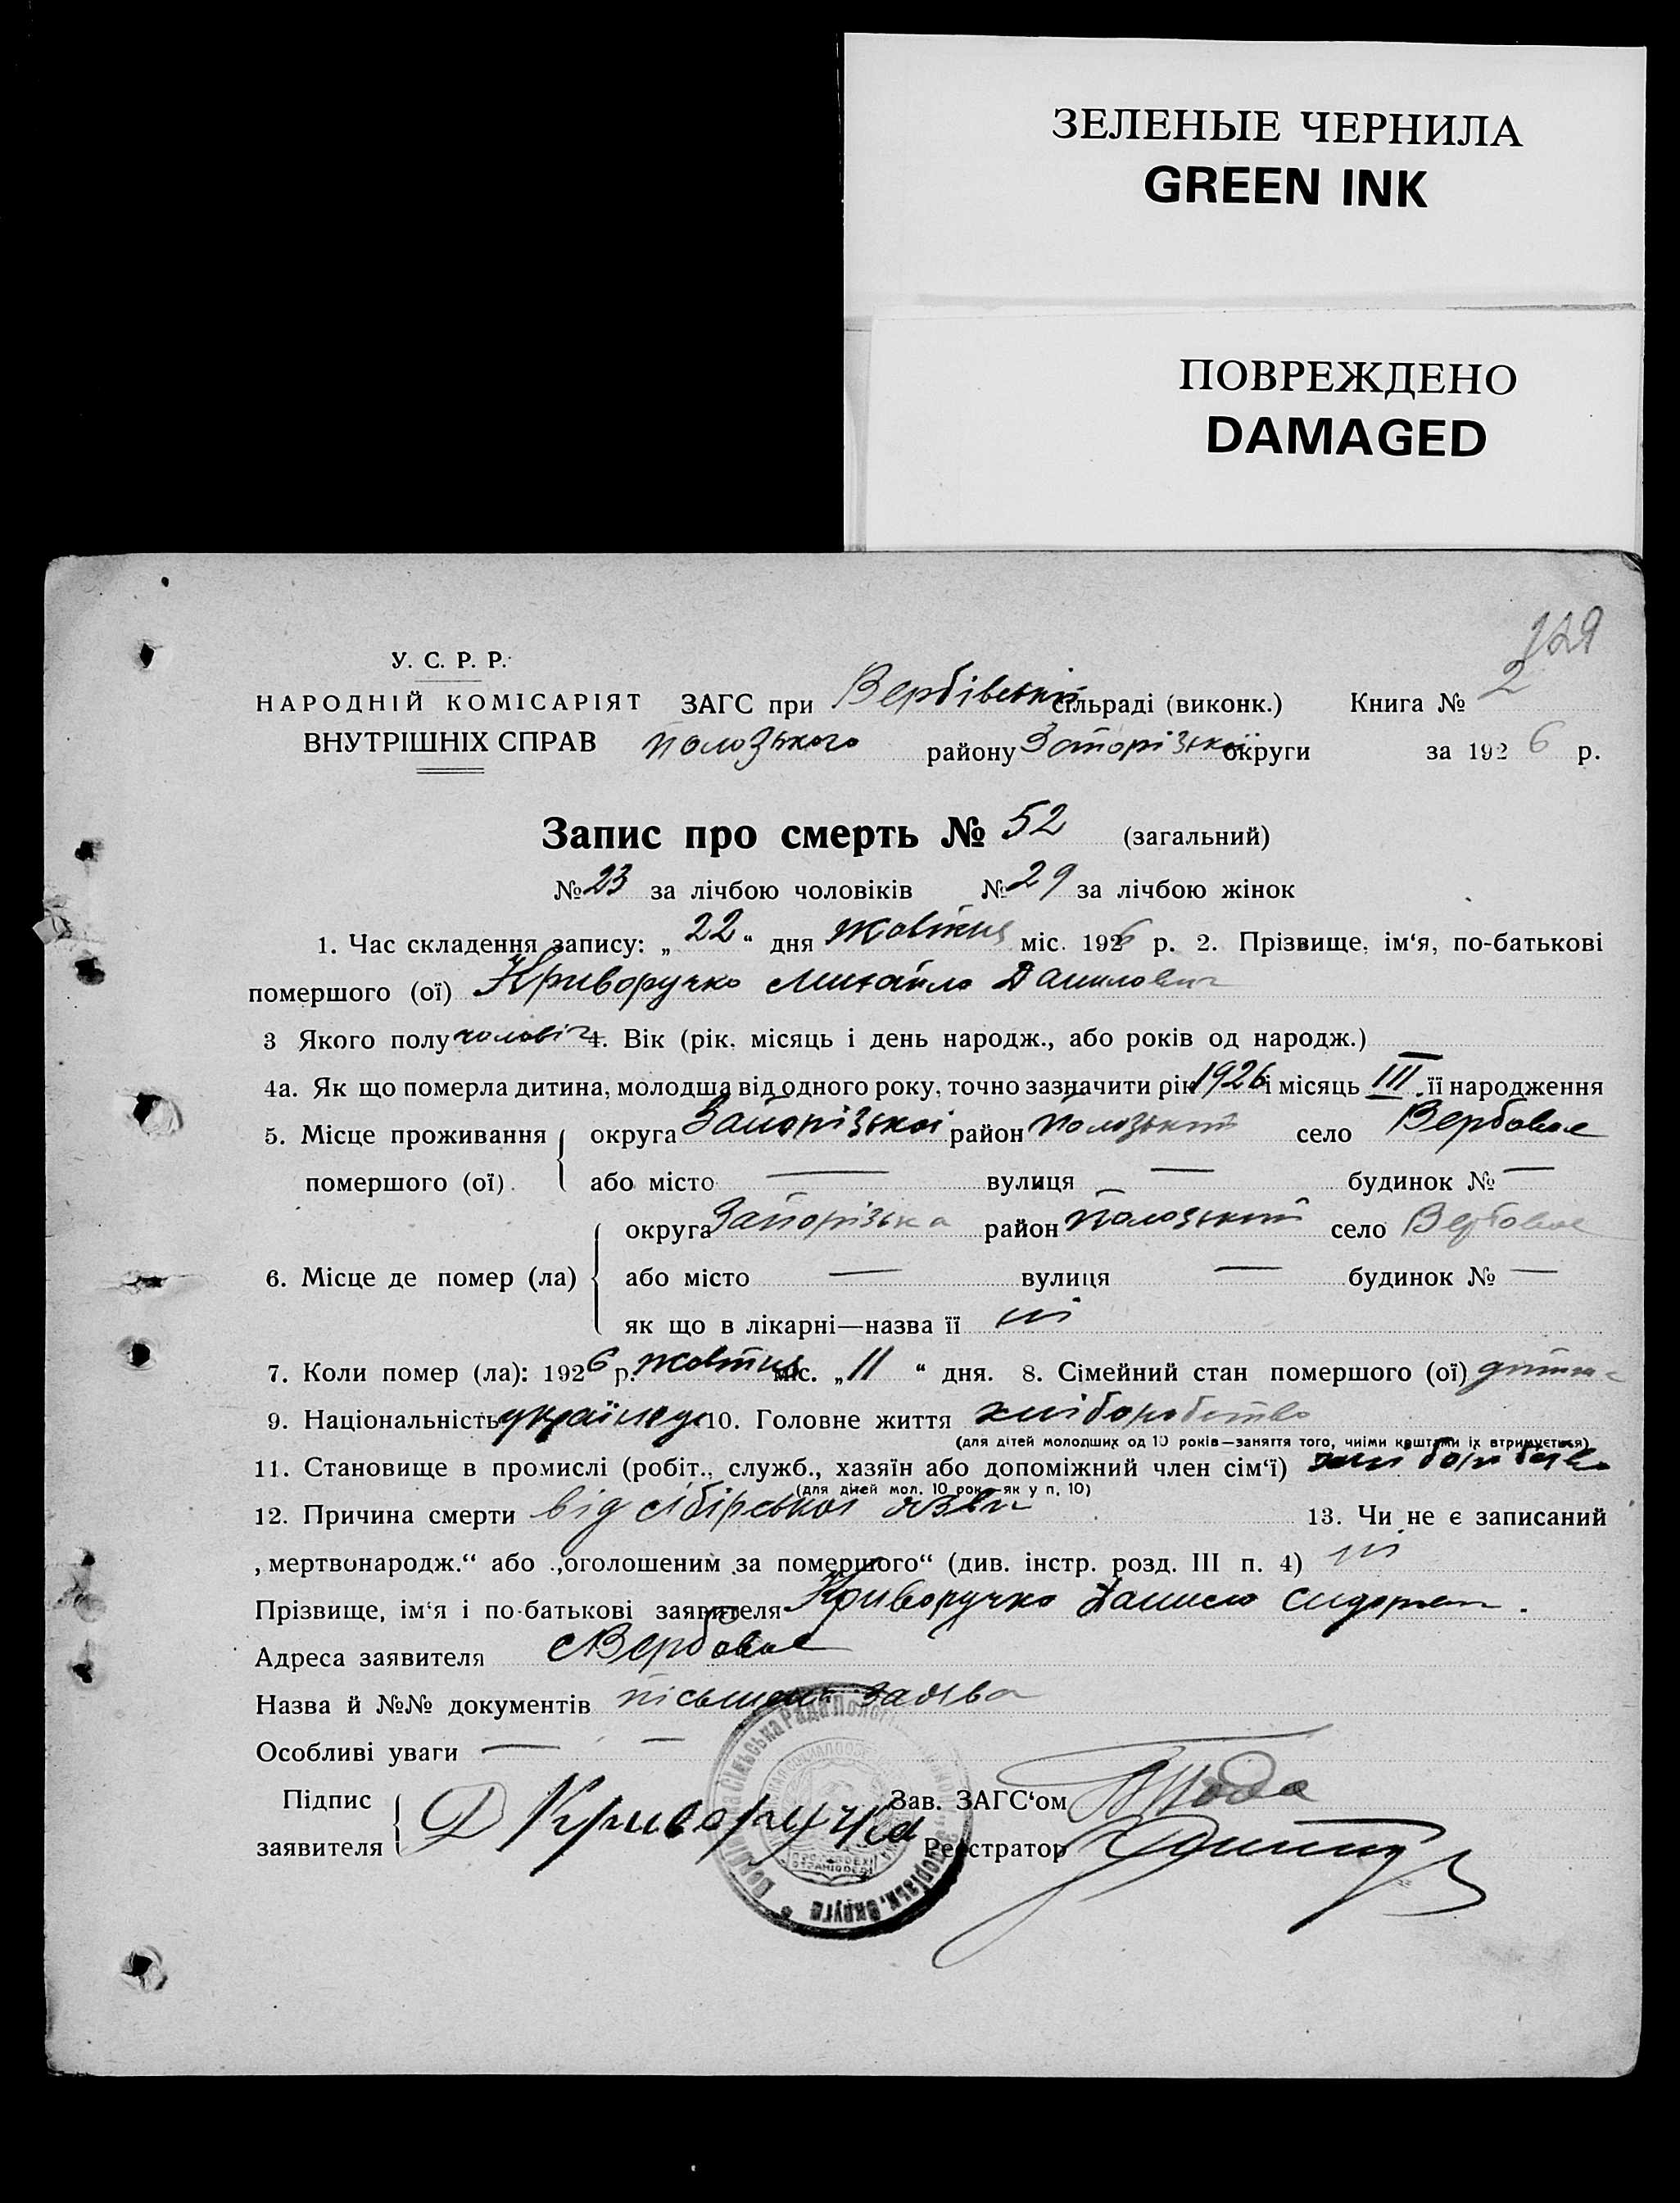 ЗЕЛЕНЫЕ ЧЕРНИЛА
GREEN INK
ПОВРЕЖДЕНО
DAMAGED
129
У. С. Р. Р.
НАРОДНІЙ КОМІСАРІЯТ ЗАГС при Вербівській сільраді (виконк.) Книга № 2
ВНУТРІШНІХ СПРАВ Полозького району Запорізької округи за 1926 р.
Запис про смерть № 52 (загальний)
№ 23 за лічбою чоловіків № 29 за лічбою жінок
1. Час складення запису: „22“ дня Жовтня міс. 1926 р. 2. Прізвище, ім‘я, по-батькові
помершого (ої) Криворучко Михайло Данилович
3 Якого полу чоловіч 4. Вік (рік, місяць і день народж., або років од народж.)
4а. Як що померла дитина, молодша від одного року, точно зазначити рік 1926 і місяць III її народження
5. Місце проживання округа Запорізькоі район Полозький село Вербовое
помершого (ої). або місто — вулиця — будинок № —
округа Запорізька район Полозький село Вербовое
6. Місце де помер (ла) або місто — вулиця — будинок № —
як що в лікарні—назва її ні
7. Коли помер (ла): 1926 р. Жовтня міс. „11“ дня. 8. Сімейний стан помершого (ої)
9. Національність українець 10. Головне життя хліборобство
(для дітей молодших од 10 років—заняття того, чиїми коштами їх втримується)
11. Становище в промислі (робіт., служб., хазяїн або допоміжний член сім‘ї) хліборобство
(для дітей мол. 10 рок.—як у п. 10)
12. Причина смерти від сібірськоі язви 13. Чи не є записаний
„мертвонародж.“ або „оголошеним за помершого“ (див. інстр. розд. III п. 4) ні
Прізвище, ім‘я і по-батькові заявителя Криворучко Данило Сидорович.
Адреса заявителя с Вербовое
Назва й №№ документів пісьмена заява
Особливі уваги — —
Підпис Зав. ЗАГС‘ом
заявителя Д Криворучко Реєстратор